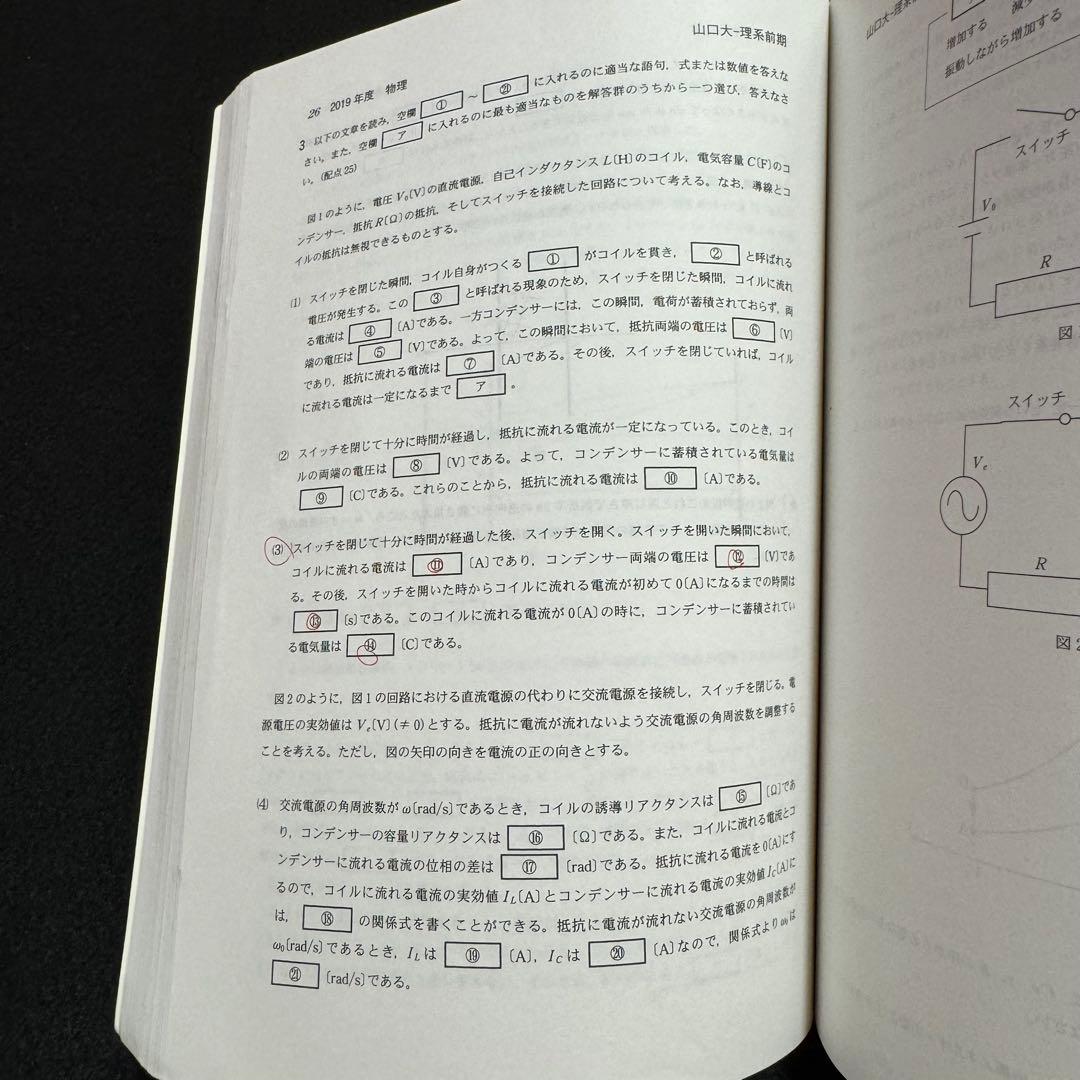 山口大-理系前期
26 2019年度 物理
3 以下の文章を読み,空欄 ① ～ ㉑ に入れるのに適当な語句,式または数値を答えな
さい。また,空欄 ア に入れるのに最も適当なものを解答群のうちから一つ選び,答えなさ
い。(配点25)
図1のように,電圧 V₀〔V〕の直流電源,自己インダクタンス L〔H〕のコイル,電気容量 C〔F〕のコ
ンデンサー,抵抗 R〔Ω〕の抵抗,そしてスイッチを接続した回路について考える。なお,導線とコ
イルの抵抗は無視できるものとする。
(1) スイッチを閉じた瞬間,コイル自身がつくる ① がコイルを貫き, ② と呼ばれる
電圧が発生する。この ③ と呼ばれる現象のため,スイッチを閉じた瞬間,コイルに流れ
る電流は ④ 〔A〕である。一方コンデンサーには,この瞬間,電荷が蓄積されておらず,両
端の電圧は ⑤ 〔V〕である。よって,この瞬間において,抵抗両端の電圧は ⑥ 〔V〕
であり,抵抗に流れる電流は ⑦ 〔A〕である。その後,スイッチを閉じていれば,コイル
に流れる電流は一定になるまで ア 。
(2) スイッチを閉じて十分に時間が経過し,抵抗に流れる電流が一定になっている。このとき,コイ
ルの両端の電圧は ⑧ 〔V〕である。よって,コンデンサーに蓄積されている電気量は
⑨ 〔C〕である。これらのことから,抵抗に流れる電流は ⑩ 〔A〕である。
(3) スイッチを閉じて十分に時間が経過した後,スイッチを開く。スイッチを開いた瞬間において,
コイルに流れる電流は ⑪ 〔A〕であり,コンデンサー両端の電圧は ⑫ 〔V〕であ
る。その後,スイッチを開いた時からコイルに流れる電流が初めて 0〔A〕になるまでの時間は
⑬ 〔s〕である。このコイルに流れる電流が 0〔A〕の時に,コンデンサーに蓄積されてい
る電気量は ⑭ 〔C〕である。
図2のように,図1の回路における直流電源の代わりに交流電源を接続し,スイッチを閉じる。電
源電圧の実効値は Vₑ〔V〕(≠0)とする。抵抗に電流が流れないよう交流電源の角周波数を調整する
ことを考える。ただし,図の矢印の向きを電流の正の向きとする。
(4) 交流電源の角周波数が ω〔rad/s〕であるとき,コイルの誘導リアクタンスは ⑮ 〔Ω〕であ
り,コンデンサーの容量リアクタンスは ⑯ 〔Ω〕である。また,コイルに流れる電流とコ
ンデンサーに流れる電流の位相の差は ⑰ 〔rad〕である。抵抗に流れる電流を 0〔A〕にす
るので,コイルに流れる電流の実効値 I_L〔A〕とコンデンサーに流れる電流の実効値 I_C〔A〕に
は, ⑱ の関係式を書くことができる。抵抗に電流が流れない交流電源の角周波数が
ω₀〔rad/s〕であるとき,I_L は ⑲ 〔A〕,I_C は ⑳ 〔A〕なので,関係式より ω₀ は
㉑ 〔rad/s〕である。
山口大-理系
増加する
振動しながら増加する
スイッチ
V₀
R
図
スイッチ
Vₑ
R
図2